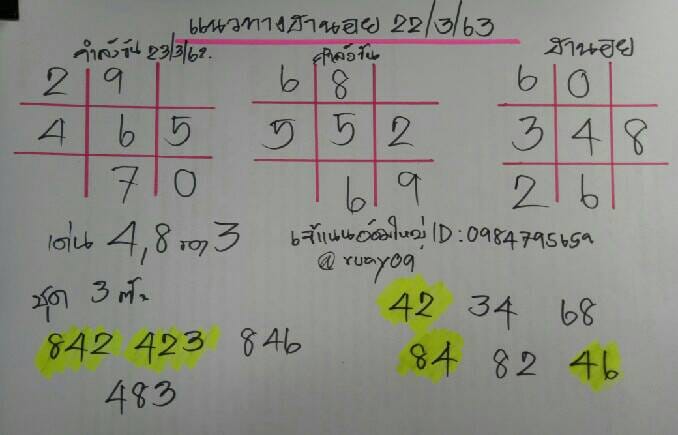 แนวทางฮานอย 22/3/63
กำลังวัน 23/3/62. กำลังวัน ฮานอย
2 9 6 8 6 0
4 6 5 5 5 2 3 4 8
7 0 6 9 2 6
เด่น 4,8 รอง 3
เจ๊แนนอ้อมใหญ่ ID: 0984795659
@ruay09
ชุด 3 ตัว
42 34 68
842 423 846
84 82 46
483